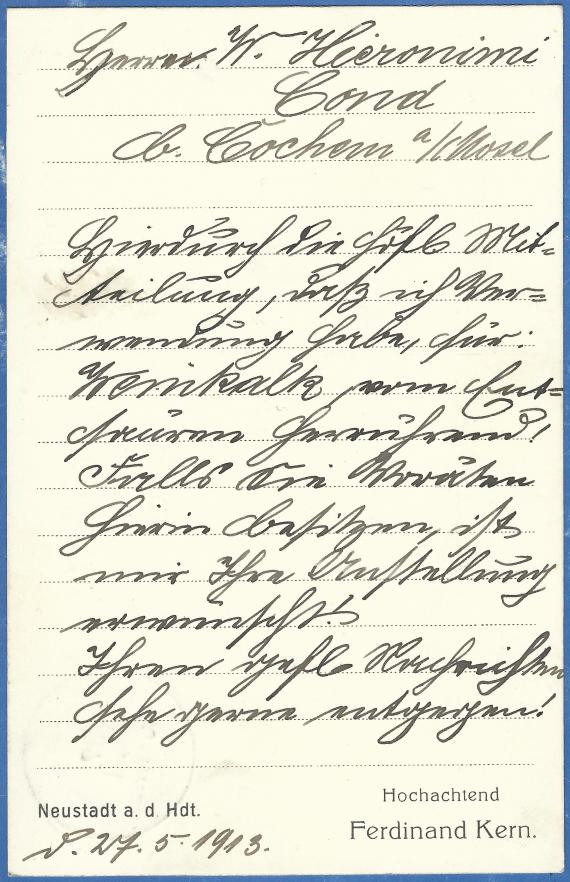 Herrn W. Hieronimi
Cond
b. Cochem a/Mosel
Hierdurch die höfl Mit-
teilung, daß ich Ver-
wendung habe, für:
Weinkalk vom Ent-
säuren herrührend!
Falls Sie Voräten
hierin besitzen, ist
mir Ihre Anstellung
erwünscht!
Ihren gefl Nachrichten
sehe gerne entgegen!
Hochachtend
Neustadt a. d. Hdt.
Ferdinand Kern.
d. 27. 5. 1913.